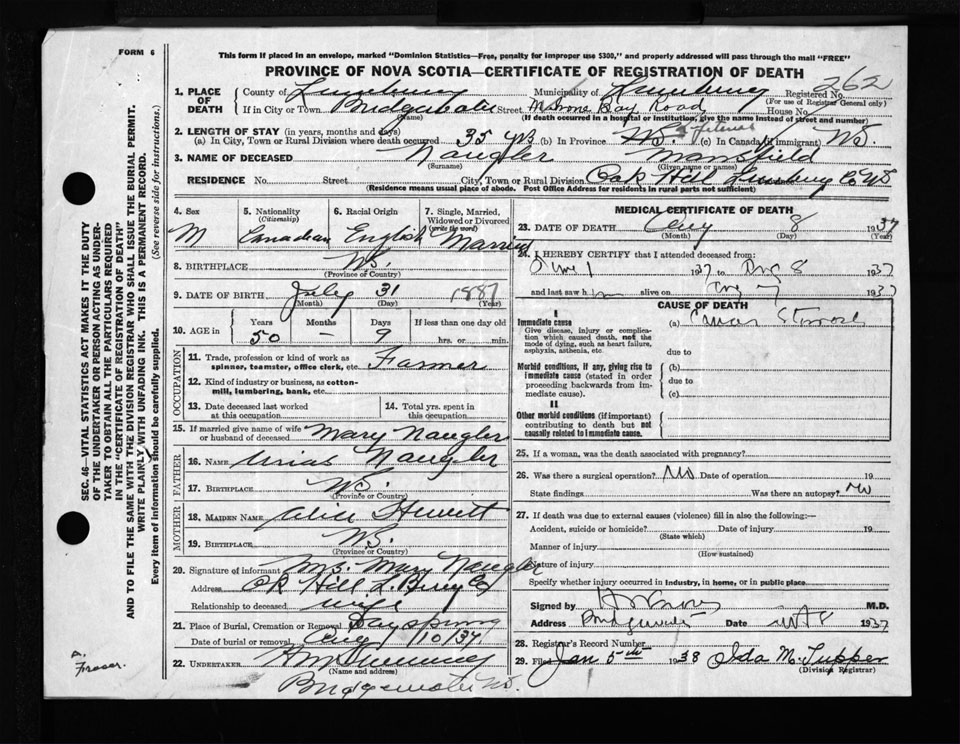 FORM 6
This form if placed in an envelope, marked "Dominion Statistics—Free, penalty for improper use $300," and properly addressed will pass through the mail "FREE"
PROVINCE OF NOVA SCOTIA—CERTIFICATE OF REGISTRATION OF DEATH
1. PLACE OF DEATH
County of Lunenburg Municipality of Lunenburg Registered No.
(For use of Registrar General only)
If in City or Town Bridgewater Street Mahone Bay Road House No.
(Name) (If death occurred in a hospital or institution, give the name instead of street and number)
2. LENGTH OF STAY (in years, months and days)
(a) In City, Town or Rural Division where death occurred 35 yrs (b) In Province (c) In Canada (if immigrant) NS.
3. NAME OF DECEASED Naugler Mansfield
(Surname) (Given name or names)
RESIDENCE No. Street City, Town or Rural Division Oak Hill Lunburg Co NS
(Residence means usual place of abode. Post Office Address for residents in rural parts not sufficient)
4. Sex
M
5. Nationality
(Citizenship)
Canadian
6. Racial Origin
English
7. Single, Married, Widowed or Divorced
(write the word)
Married
8. BIRTHPLACE NS.
(Province or Country)
9. DATE OF BIRTH July 31 1887
(Month) (Day) (Year)
10. AGE in
Years Months Days If less than one day old
50 – 9 hrs. or min.
OCCUPATION
11. Trade, profession or kind of work as spinner, teamster, office clerk, etc. Farmer
12. Kind of industry or business, as cotton-mill, lumbering, bank, etc.
13. Date deceased last worked at this occupation
14. Total yrs. spent in this occupation
15. If married give name of wife or husband of deceased Mary Naugler
FATHER
16. NAME Urias Naugler
17. BIRTHPLACE NS.
(Province or Country)
MOTHER
18. MAIDEN NAME Alice Hewitt
19. BIRTHPLACE NS.
(Province or Country)
20. Signature of informant Mrs. Mary Naugler
Address Ok Hill L. Burg Co
Relationship to deceased wife
21. Place of Burial, Cremation or Removal Dayspring
Date of burial or removal Aug 10/37
22. UNDERTAKER
(Name and address)
Bridgewater NS.
MEDICAL CERTIFICATE OF DEATH
23. DATE OF DEATH Aug 8 1937
(Month) (Day) (Year)
24. I HEREBY CERTIFY that I attended deceased from:
June 1 1937 to Aug 8 1937
and last saw him alive on Aug 7 1937
CAUSE OF DEATH
I
Immediate cause
Give disease, injury or complication which caused death, not the mode of dying, such as heart failure, asphyxia, asthenia, etc.
(a)
due to
Morbid conditions, if any, giving rise to immediate cause (stated in order proceeding backwards from immediate cause).
(b)
due to
(c)
II
Other morbid conditions (if important) contributing to death but not causally related to immediate cause.
25. If a woman, was the death associated with pregnancy?
26. Was there a surgical operation? No Date of operation 19
State findings Was there an autopsy? No
27. If death was due to external causes (violence) fill in also the following:—
Accident, suicide or homicide? Date of injury 19
(State which)
Manner of injury
(How sustained)
Nature of injury
Specify whether injury occurred in industry, in home, or in public place.
Signed by M.D.
Address Bridgewater Date 1937
28. Registrar's Record Number
29. Filed Jan 5th 1938 Olda M. Tupper
(Division Registrar)
SEC. 46—VITAL STATISTICS ACT MAKES IT THE DUTY
OF THE UNDERTAKER OR PERSON ACTING AS UNDER-
TAKER TO OBTAIN ALL THE PARTICULARS REQUIRED
IN THE "CERTIFICATE OF REGISTRATION OF DEATH"
AND TO FILE THE SAME WITH THE DIVISION REGISTRAR WHO SHALL ISSUE THE BURIAL PERMIT.
WRITE PLAINLY, WITH UNFADING INK. THIS IS A PERMANENT RECORD.
Every item of information should be carefully supplied. (See reverse side for instructions.)
A. Fraser.